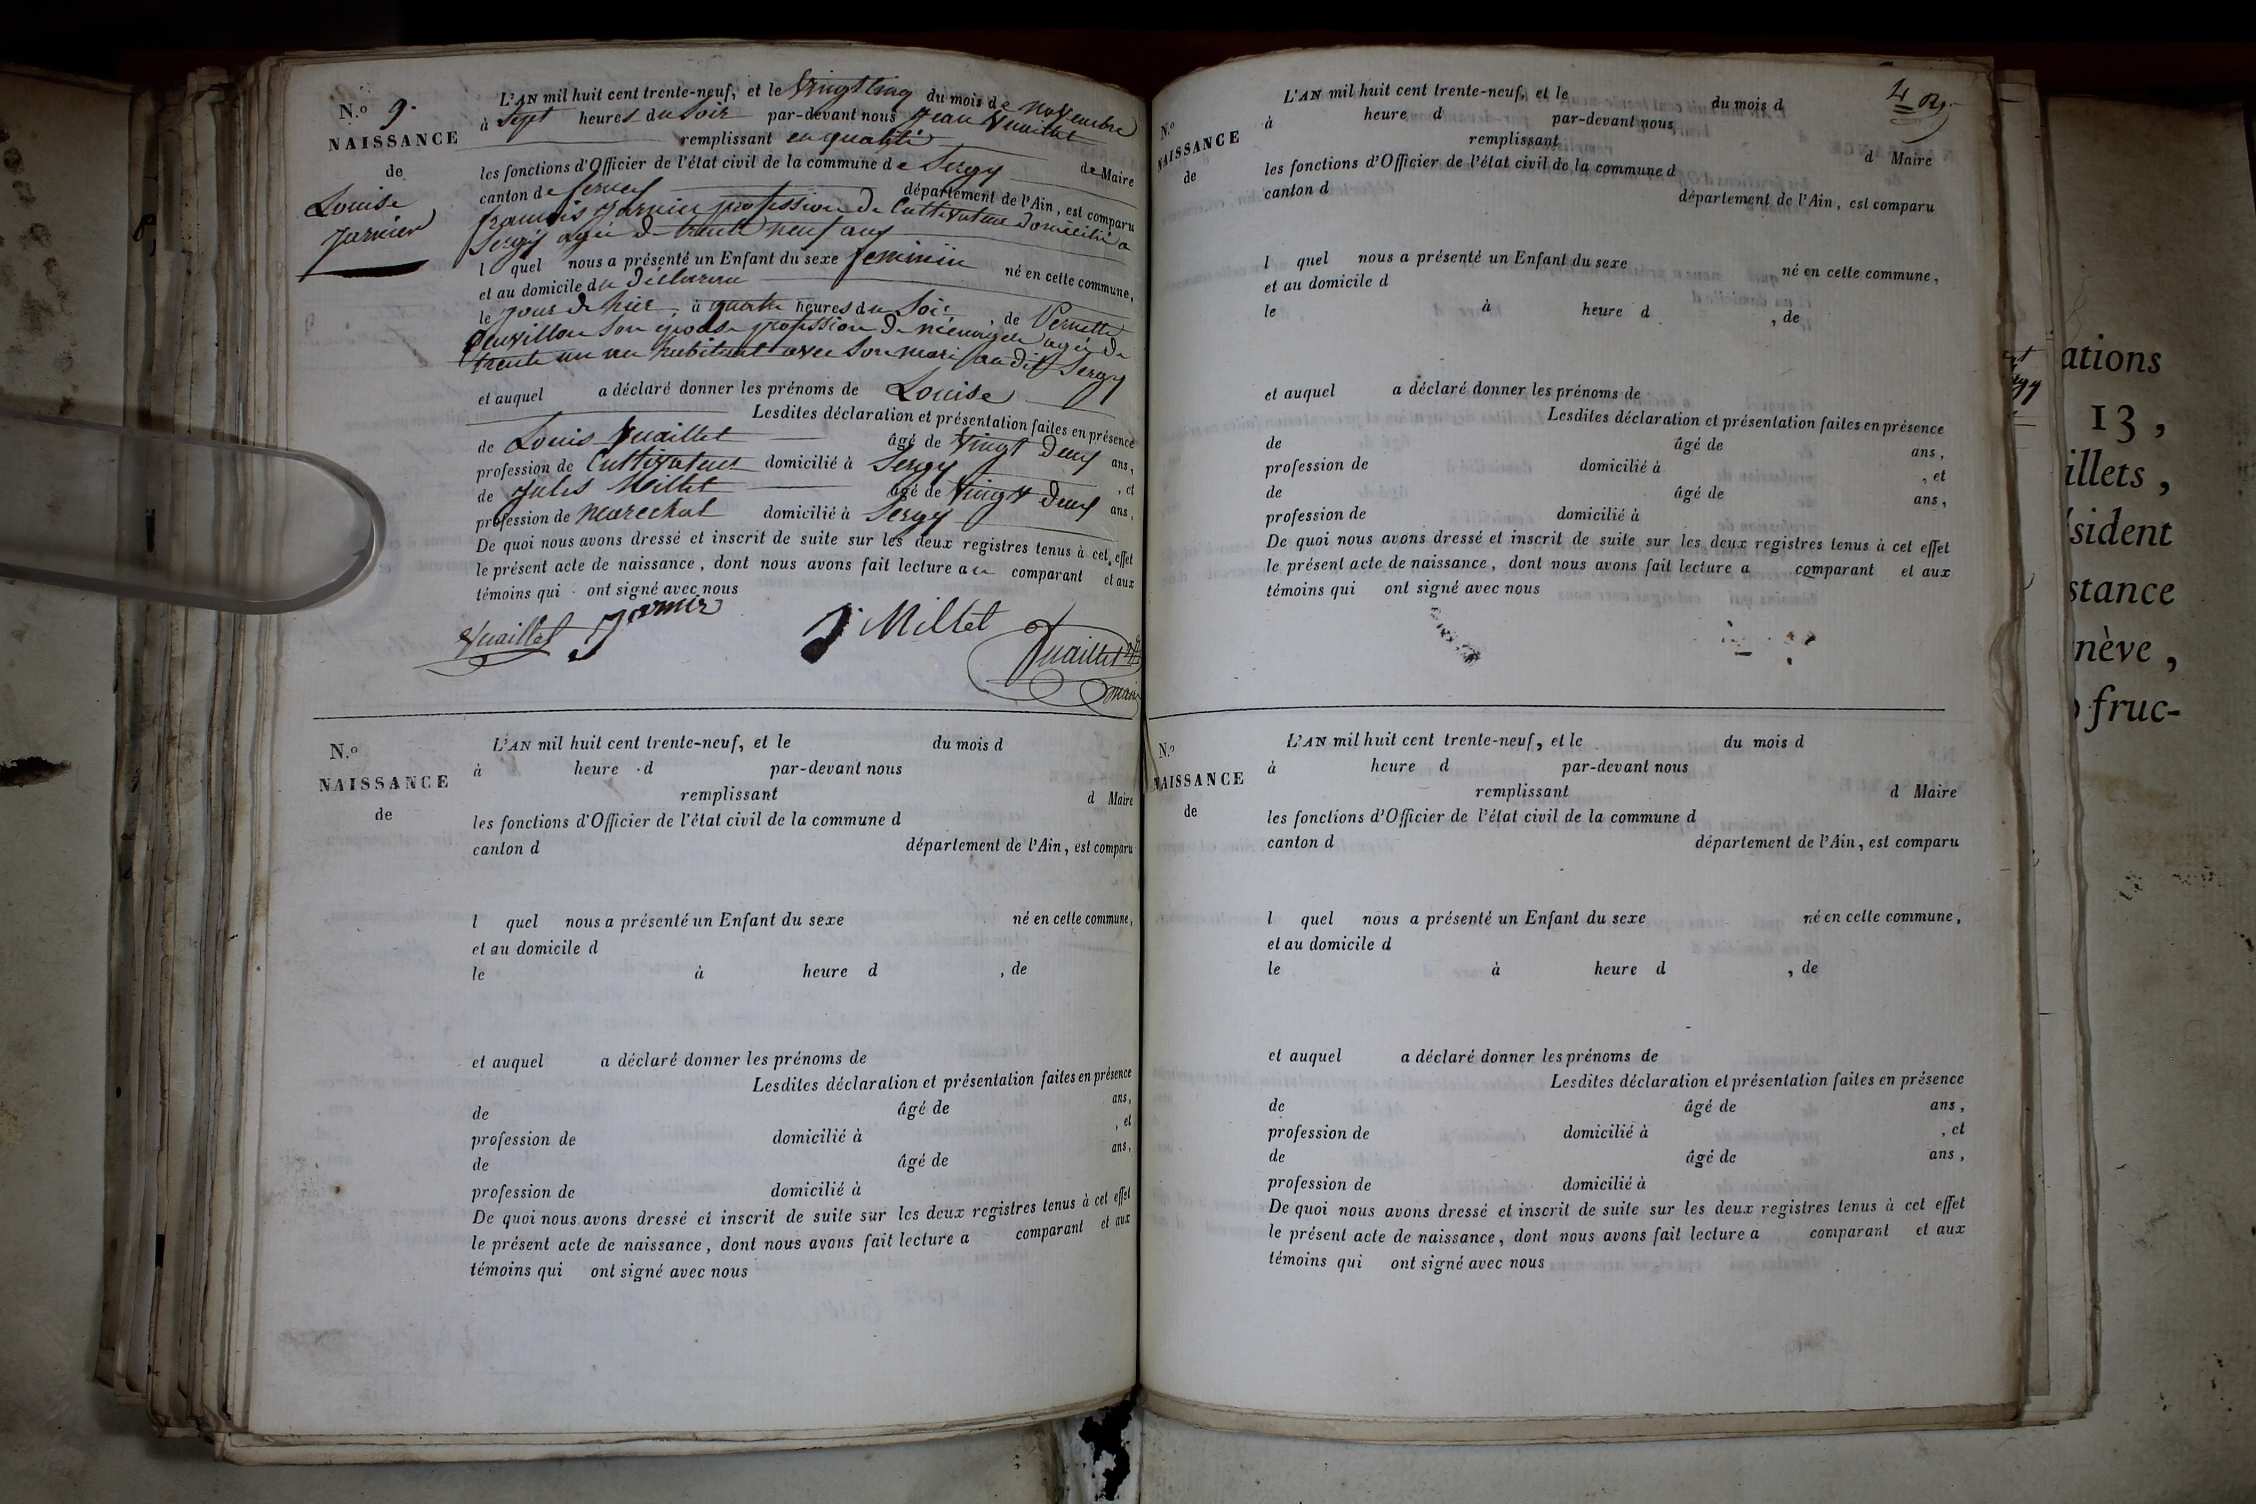 N.º 9.
NAISSANCE
de
Louise
Jarnier
L'AN mil huit cent trente-neuf, et le vingt cinq du mois de novembre
à Sept heures du Soir par-devant nous Jean Vuaillet
remplissant en qualité de Maire
les fonctions d'Officier de l'état civil de la commune de Sergy
canton de ferney département de l'Ain, est comparu
françois Jarnier profession de Cultivateur Domicilié a
Sergy agée de trente neuf ans
l quel nous a présenté un Enfant du sexe feminin né en cette commune,
et au domicile du
le jour de hier, à quatre heures du Soir, de Pernette
son epouse profession de ménagère agée de
trente un an habitant avec Son mari au dit Sergy
et auquel a déclaré donner les prénoms de Louise
Lesdites déclaration et présentation faites en présence
de Louis Vuaillet âgé de vingt Deux ans,
profession de Cultivateur domicilié à Sergy, et
de Jules Millet âgé de vingt Deux ans,
profession de marechal domicilié à Sergy
De quoi nous avons dressé et inscrit de suite sur les deux registres tenus à cet effet
le présent acte de naissance, dont nous avons fait lecture au comparant et aux
témoins qui ont signé avec nous
Vuaillet Jarnier J. Millet Vuaillet
maire
N.º
NAISSANCE
de
L'AN mil huit cent trente-neuf, et le du mois d
à heure d par-devant nous
remplissant d Maire
les fonctions d'Officier de l'état civil de la commune d
canton d département de l'Ain, est comparu
l quel nous a présenté un Enfant du sexe né en cette commune,
et au domicile d
le à heure d , de
et auquel a déclaré donner les prénoms de
Lesdites déclaration et présentation faites en présence
de âgé de ans,
profession de domicilié à , et
de âgé de ans,
profession de domicilié à
De quoi nous avons dressé et inscrit de suite sur les deux registres tenus à cet effet
le présent acte de naissance, dont nous avons fait lecture a comparant et aux
témoins qui ont signé avec nous
N.º
NAISSANCE
de
L'AN mil huit cent trente-neuf, et le du mois d
à heure d par-devant nous
remplissant d Maire
les fonctions d'Officier de l'état civil de la commune d
canton d département de l'Ain, est comparu
l quel nous a présenté un Enfant du sexe né en cette commune,
et au domicile d
le à heure d , de
et auquel a déclaré donner les prénoms de
Lesdites déclaration et présentation faites en présence
de âgé de ans,
profession de domicilié à , et
de âgé de ans,
profession de domicilié à
De quoi nous avons dressé et inscrit de suite sur les deux registres tenus à cet effet
le présent acte de naissance, dont nous avons fait lecture a comparant et aux
témoins qui ont signé avec nous
N.º
NAISSANCE
de
L'AN mil huit cent trente-neuf, et le du mois d
à heure d par-devant nous
remplissant d Maire
les fonctions d'Officier de l'état civil de la commune d
canton d département de l'Ain, est comparu
l quel nous a présenté un Enfant du sexe né en cette commune,
et au domicile d
le à heure d , de
et auquel a déclaré donner les prénoms de
Lesdites déclaration et présentation faites en présence
de âgé de ans,
profession de domicilié à , et
de âgé de ans,
profession de domicilié à
De quoi nous avons dressé et inscrit de suite sur les deux registres tenus à cet effet
le présent acte de naissance, dont nous avons fait lecture a comparant et aux
témoins qui ont signé avec nous
ations
13,
illets,
sident
stance
nève,
fruc-